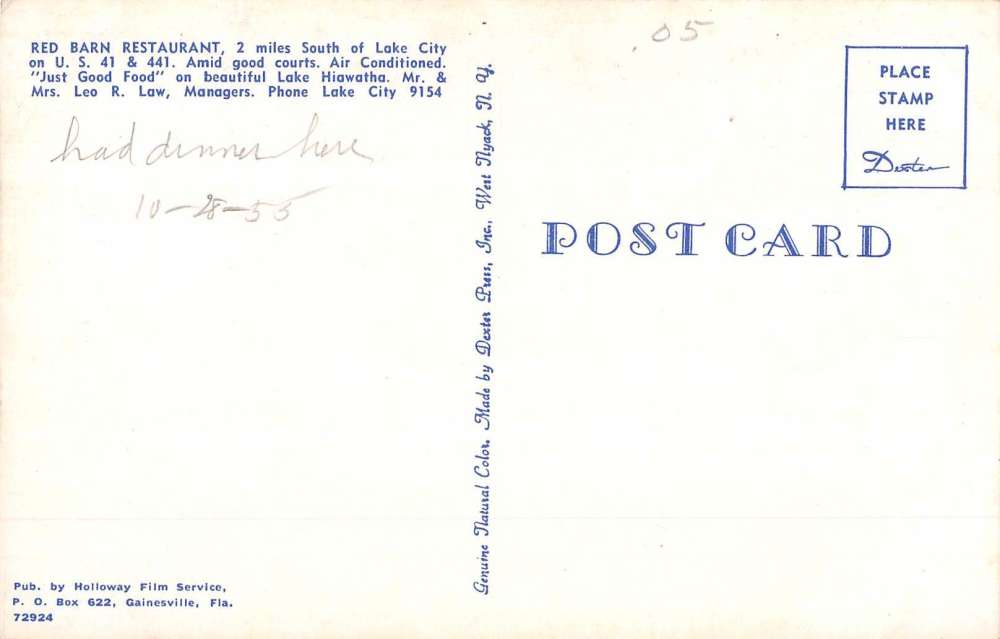 RED BARN RESTAURANT, 2 miles South of Lake City
on U. S. 41 & 441. Amid good courts. Air Conditioned.
"Just Good Food" on beautiful Lake Hiawatha. Mr. &
Mrs. Leo R. Law, Managers. Phone Lake City 9154
had dinner here
10-28-55
Pub. by Holloway Film Service,
P. O. Box 622, Gainesville, Fla.
72924
Genuine Natural Color. Made by Dexter Press, Inc., West Nyack, N. Y.
.05
POST CARD
PLACE
STAMP
HERE
Dexter